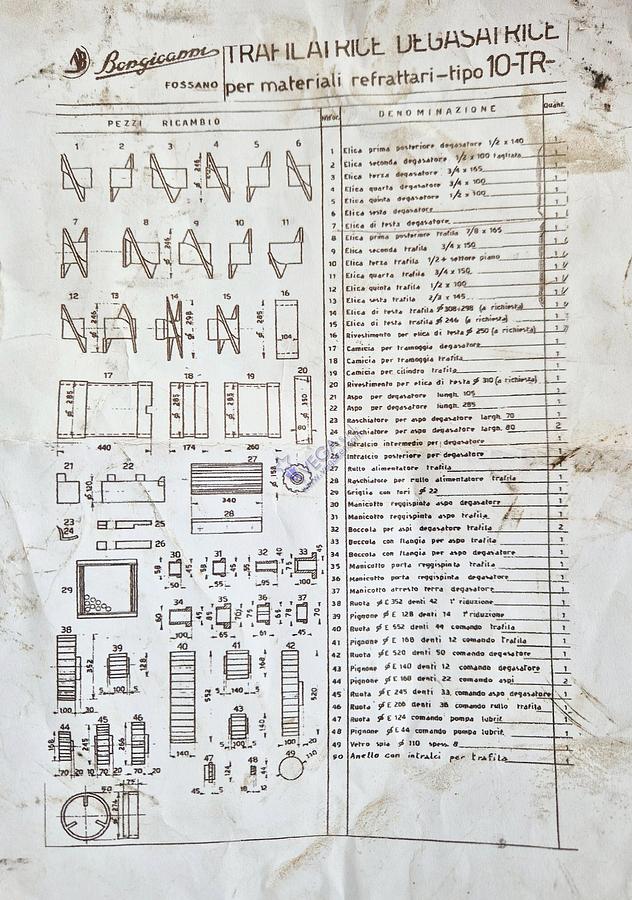 Bongioanni
FOSSANO
TRAFILATRICE DEGASATRICE
per materiali refrattari-tipo 10-TR-
PEZZI RICAMBIO
DENOMINAZIONE
Quant.
1 Elica prima posteriore degasatore 1/2 x 140 1
2 Elica seconda degasatore 1/2 x 100 tagliata 1
3 Elica terza degasatore 3/4 x 165 1
4 Elica quarta degasatore 3/4 x 100 1
5 Elica quinta degasatore 1/2 x 100 1
6 Elica sesta degasatore 1
7 Elica di testa degasatore 1
8 Elica prima posteriore trafila 7/8 x 165 1
9 Elica seconda trafila 3/4 x 150 1
10 Elica terza trafila 1/2 + settore piano 1
11 Elica quarta trafila 3/4 x 150 1
12 Elica quinta trafila 1/2 x 100 1
13 Elica sesta trafila 2/3 x 145 1
14 Elica di testa trafila ø 308÷298 (a richiesta) 1
15 Elica di testa trafila ø 246 (a richiesta) 1
16 Rivestimento per elica di testa ø 250 (a richiesta) 1
17 Camicia per tramoggia degasatore 1
18 Camicia per tramoggia trafila 1
19 Camicia per cilindro trafila 1
20 Rivestimento per elica di testa ø 310 (a richiesta) 1
21 Aspo per degasatore lungh. 105 1
22 Aspo per degasatore lungh. 285 1
23 Raschiatore per aspo degasatore largh. 70 1
24 Raschiatore per aspo degasatore largh. 80 2
25 Intralcio intermedio per degasatore 1
26 Intralcio posteriore per degasatore 1
27 Rullo alimentatore trafila 1
28 Raschiatore per rullo alimentatore trafila 1
29 Griglia con fori ø 22 1
30 Manicotto reggispinta aspo degasatore 1
31 Manicotto reggispinta aspo trafila 1
32 Boccola per aspi degasatore trafila 2
33 Boccola con flangia per aspo trafila 1
34 Boccola con flangia per aspo degasatore 1
35 Manicotto porta reggispinta trafila 1
36 Manicotto porta reggispinta degasatore 1
37 Manicotto arresto terra degasatore 1
38 Ruota ø E 352 denti 42 1° riduzione 1
39 Pignone ø E 128 denti 14 1° riduzione 1
40 Ruota ø E 552 denti 44 comando trafila 1
41 Pignone ø E 168 denti 12 comando trafila 1
42 Ruota ø E 520 denti 50 comando degasatore 1
43 Pignone ø E 140 denti 12 comando degasatore 1
44 Pignone ø E 168 denti 22 comando aspi 2
45 Ruota ø E 245 denti 33 comando aspo degasatore 1
46 Ruota ø E 266 denti 38 comando rullo trafila 1
47 Ruota ø E 124 comando pompa lubrif. 1
48 Pignone ø E 44 comando pompa lubrif. 1
49 Vetro spia ø 110 spess. 8 1
50 Anello con intralci per trafila 1
1 2 3 4 5 6
ø 246
7 8 9 10 11
ø 246
12 13 14 15 16
ø 246 ø 298 ø 285 104
17 18 19 20
ø 285 ø 285 ø 285 80
440 174 260
21 22 27
ø 120 ø 158
340
28
23 24 25
26
29 30 31 32 33
50 55 95 100
34 35 36 37
100 65 61 45
38 39 40 41 42
352 128 552 168 520
100 30 5 100 5 5 140 5
43
140
140 100
44 45 46 47 48 49
168 245 266 124 44 110
70 20 70 20
50
75
ø 274